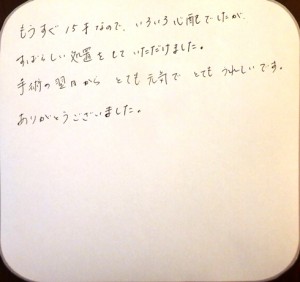 もうすぐ15才なので、いろいろ心配でしたが、
すばらしい処置をして いただけました。
手術の翌日から とても元気で とても うれしいです。
ありがとうございました。